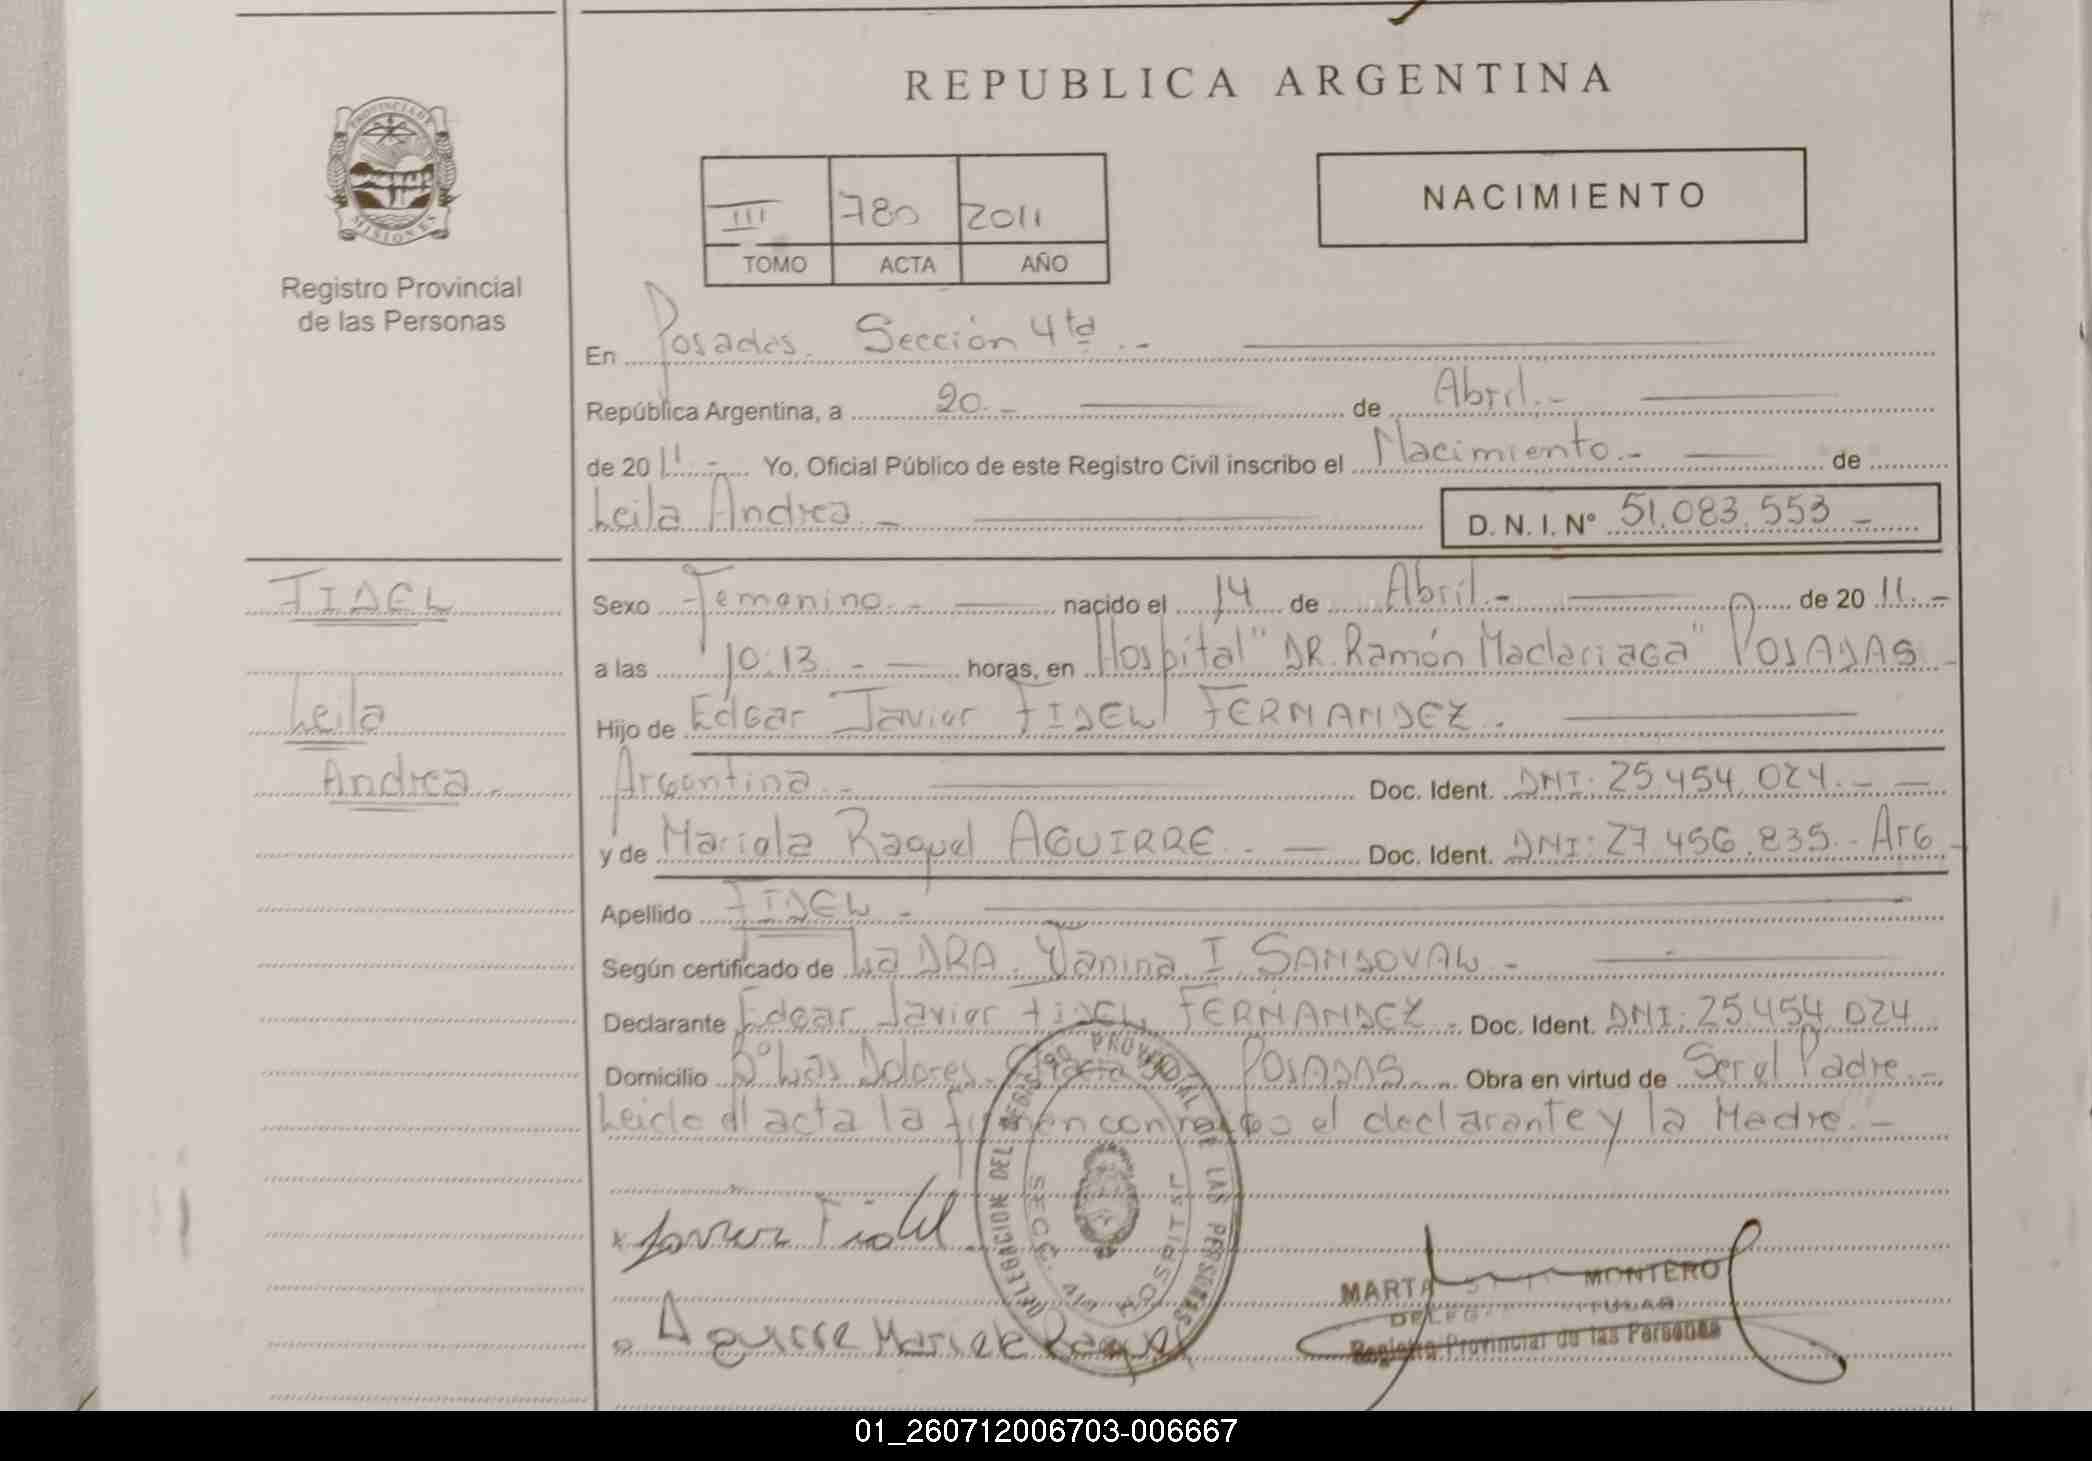 REPUBLICA ARGENTINA
PROVINCIA DE
MISIONES
Registro Provincial
de las Personas
III 780 2011
TOMO ACTA AÑO
NACIMIENTO
En Posadas. Sección 4ta.-
República Argentina, a 20.- de Abril.-
de 2011.- Yo, Oficial Público de este Registro Civil inscribo el Nacimiento.- de
Leila Andrea.- D. N. I. N° 51.083.553 -
FIDEL
Leila
Andrea.-
Sexo Femenino.- nacido el 14 de Abril.- de 2011.-
a las 10:13.- horas, en Hospital "DR. Ramón Madariaga" POSADAS -
Hijo de Edgar Javier FIDEL FERNANDEZ.
Argentina.- Doc. Ident. DNI: 25.454.024.-
y de Mariela Raquel AGUIRRE.- Doc. Ident. DNI: 27.456.835.- Arg -
Apellido FIDEL -
Según certificado de La DRA. Yanina I SANDOVAL -
Declarante Edgar Javier Fidel FERNANDEZ - Doc. Ident. DNI: 25.454.024
Domicilio B° Las Dolores. POSADAS Obra en virtud de Ser el Padre.-
Leida el acta la firman el declarante y la Madre.-
DELEGACION DEL REGISTRO PROVINCIAL DE LAS PERSONAS
SECC. 4ta HOSPITAL
Javier Fidel
Aguirre Mariela Raquel
MARTA MONTERO
TITULAR
Registro Provincial de las Personas
01_260712006703-006667